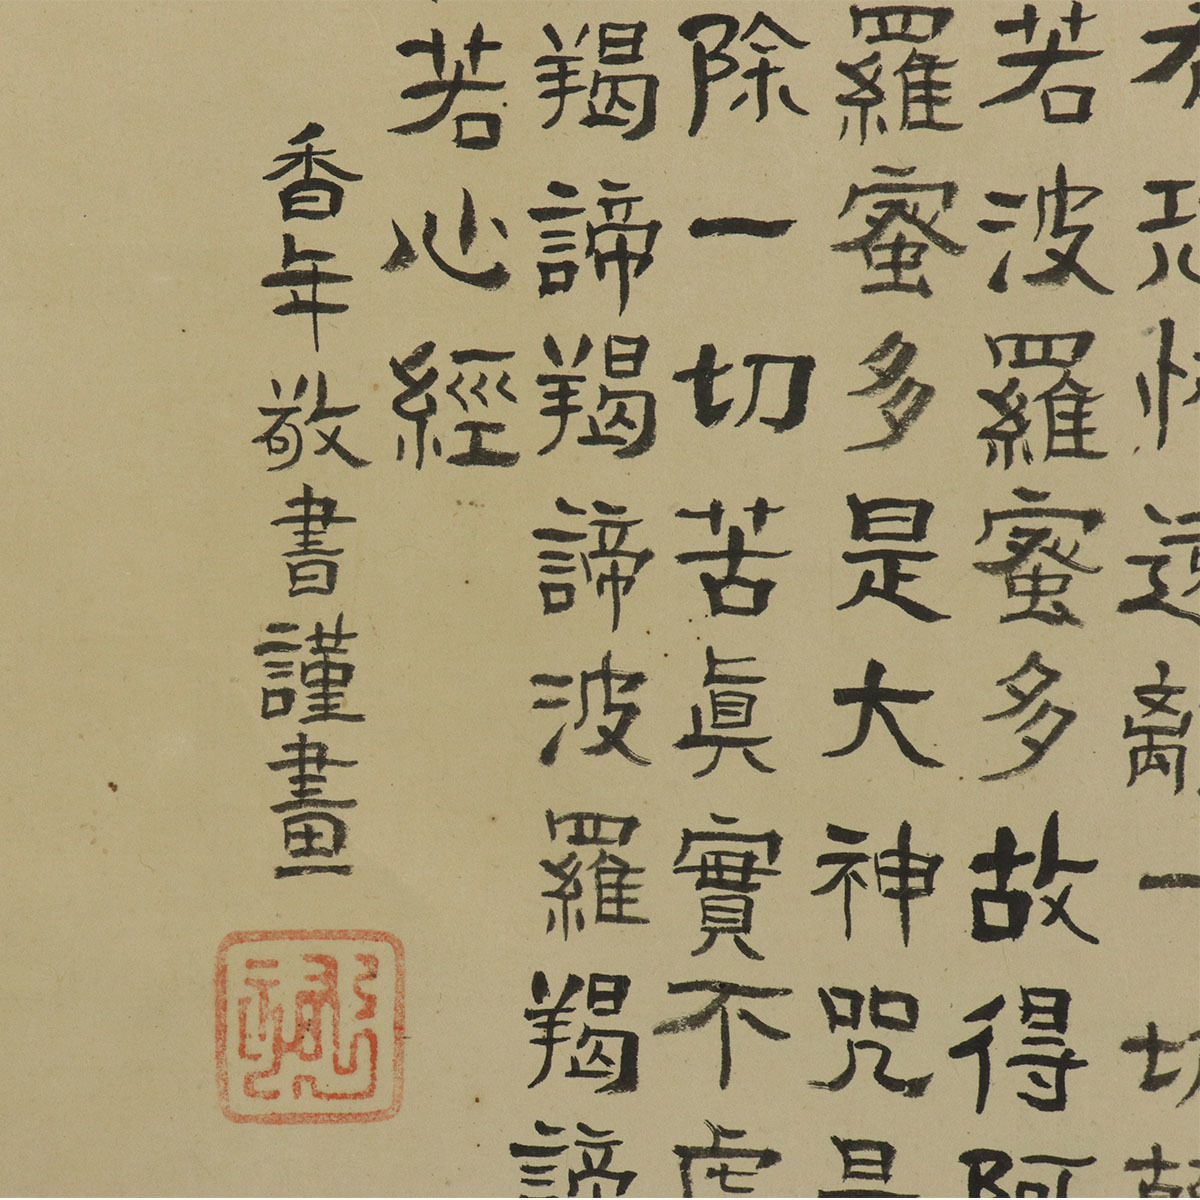 恐怖遠離一切
若波羅蜜多故得阿
羅蜜多是大神咒是
除一切苦真實不虛
羯諦羯諦波羅羯諦
若心經
香年敬書謹畫